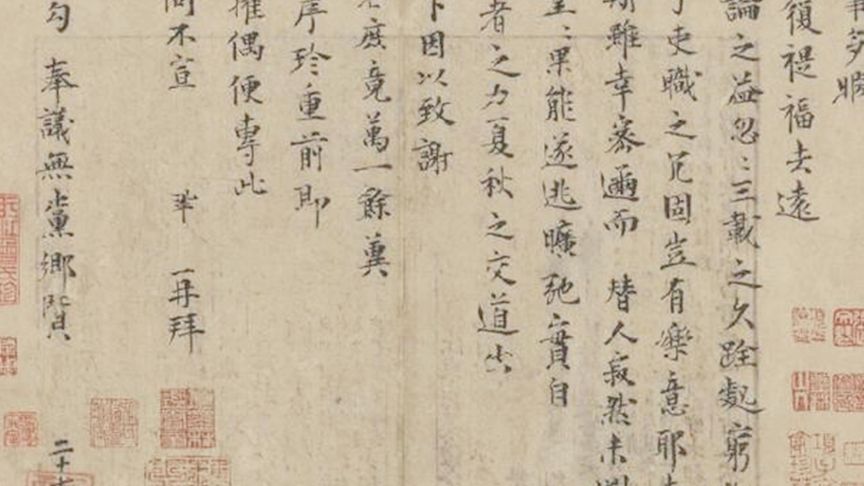 多暇
履禔福去遠
論之益忽〻三載之久跧處窮
吏職之冗固豈有樂意耶
雖幸密邇而 替人寂然未
〻果能遂逃曠弛實自
者之力夏秋之交道出
下因以致謝
庶竟萬一餘冀
序珍重前即
擢偶便專此
問不宣 鞏 再拜
勾 奉議無黨鄉賢 二十